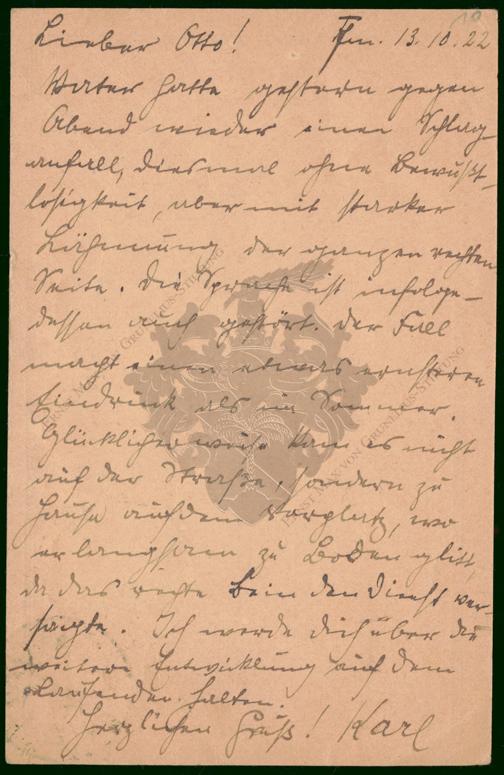 Lieber Otto! Ffm. 13.10.22
Vater hatte gestern gegen
Abend wieder einen Schlag-
anfall, diesmal ohne Bewußt-
losigkeit, aber mit starker
Lähmung der ganzen rechten
Seite. Die Sprache ist infolge-
dessen auch gestört. Der Fall
macht einen etwas ernsteren
Eindruck als im Sommer.
Glücklicherweise kam es nicht
auf der Straße, sondern zu
Hause auf dem Vorplatz, wo
er langsam zu Boden glitt,
da das rechte Bein den Dienst ver-
sagte. Ich werde dich über die
weitere Entwicklung auf dem
Laufenden halten.
Herzlichen Gruß! Karl